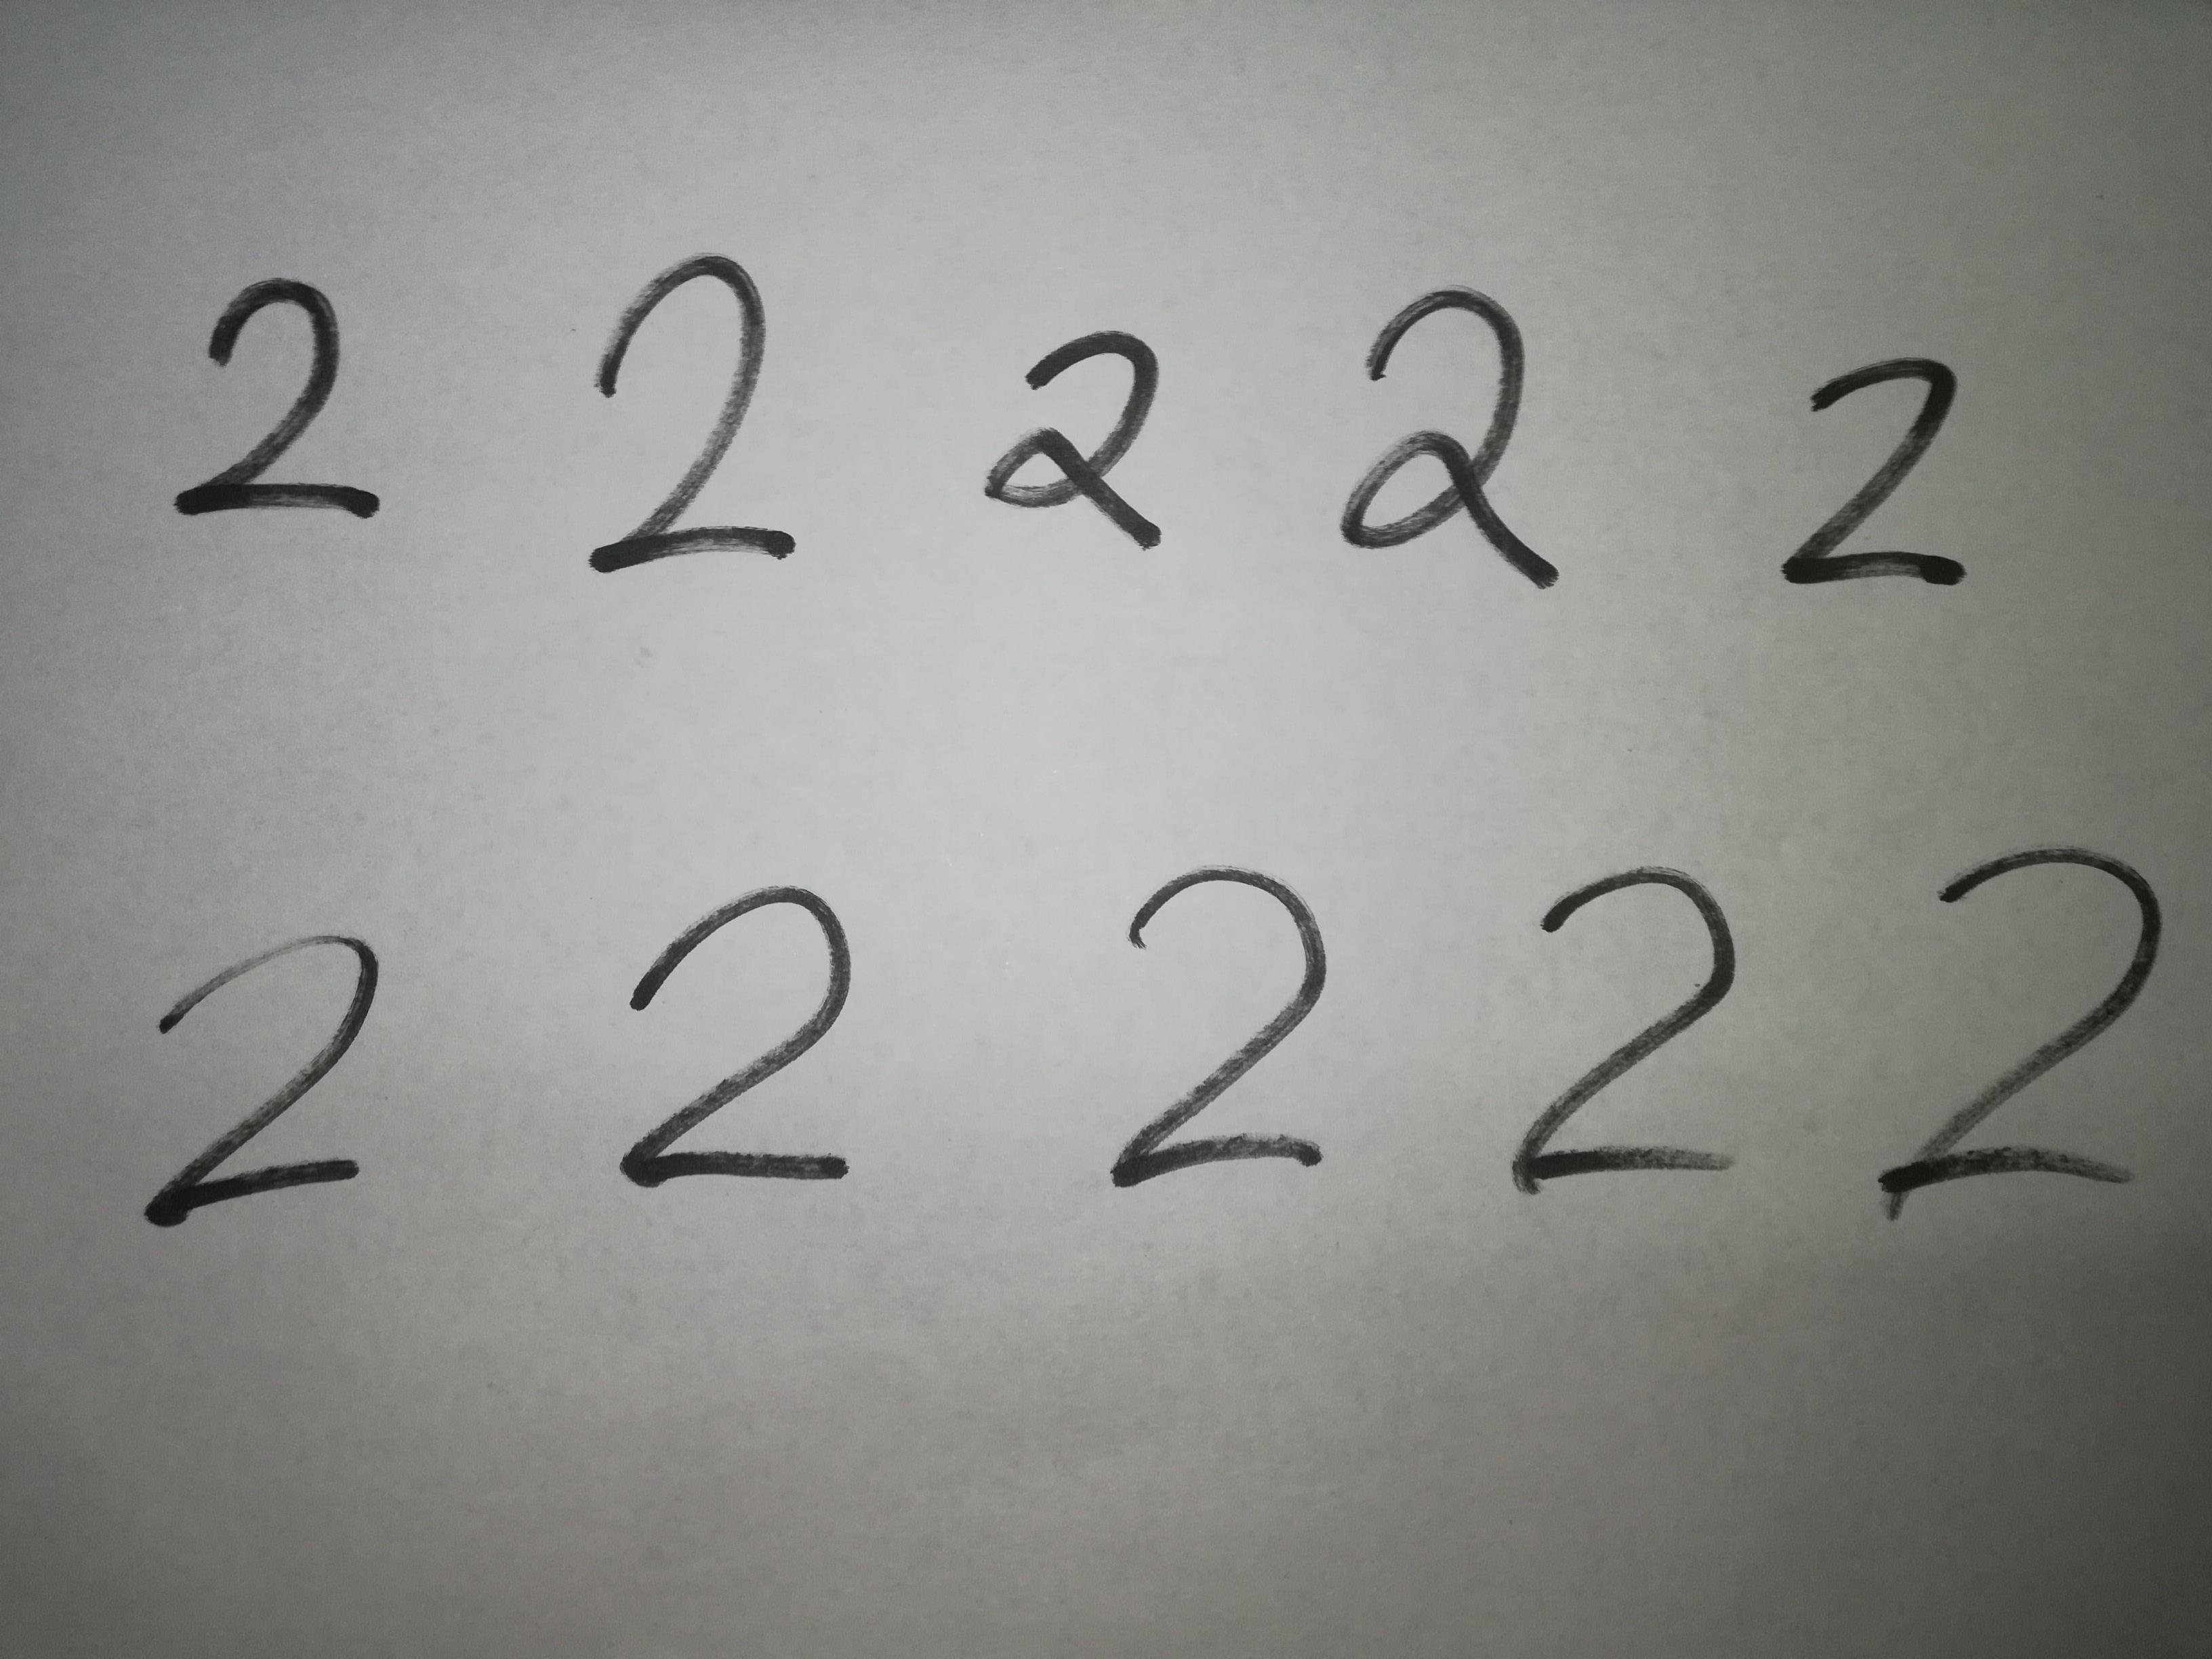 2 2 2 2 2
2 2 2 2 2